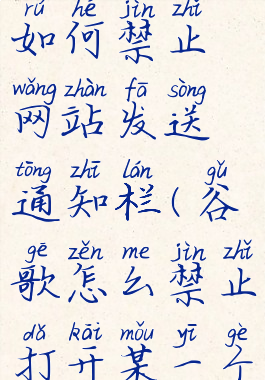 rú hé jìn zhǐ
如何禁止
wǎng zhàn fā sòng
网站发送
tōng zhī lán gǔ
通知栏(谷
gē zěn me jìn zhǐ
歌怎么禁止
dǎ kāi mǒu yī gè
打开某一个